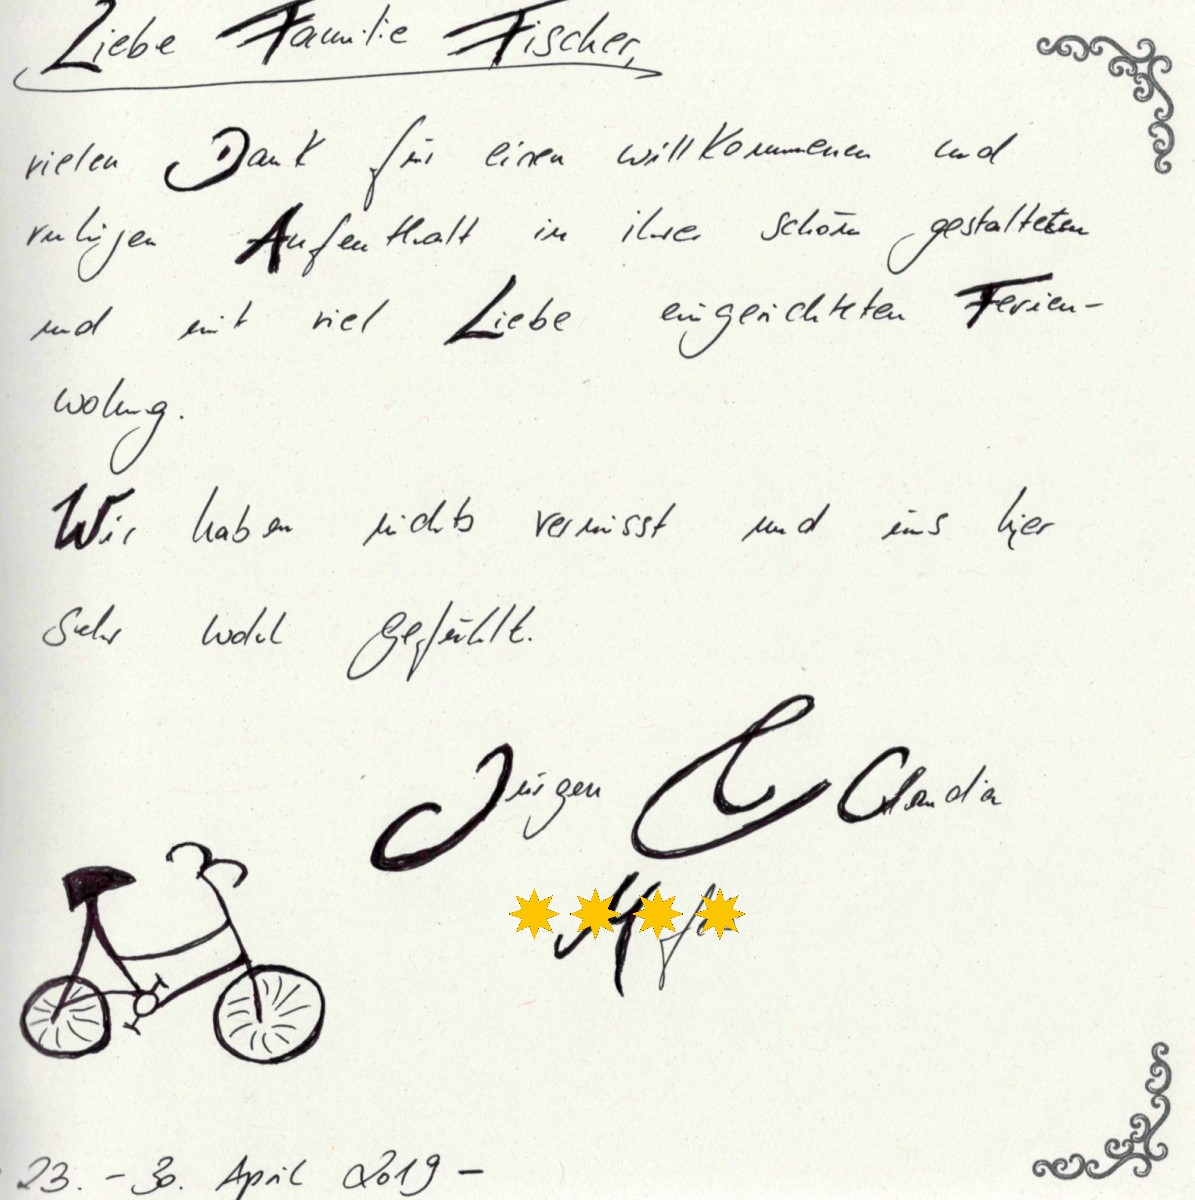 Liebe Familie Fischer,
vielen Dank für einen willkommenen und
ruhigen Aufenthalt in ihrer schön gestalteten
und mit viel Liebe eingerichteten Ferien-
wohnung.
Wir haben nichts vermisst und uns hier
sehr wohl gefühlt.
Jürgen & Claudia
23. - 30. April 2019 -